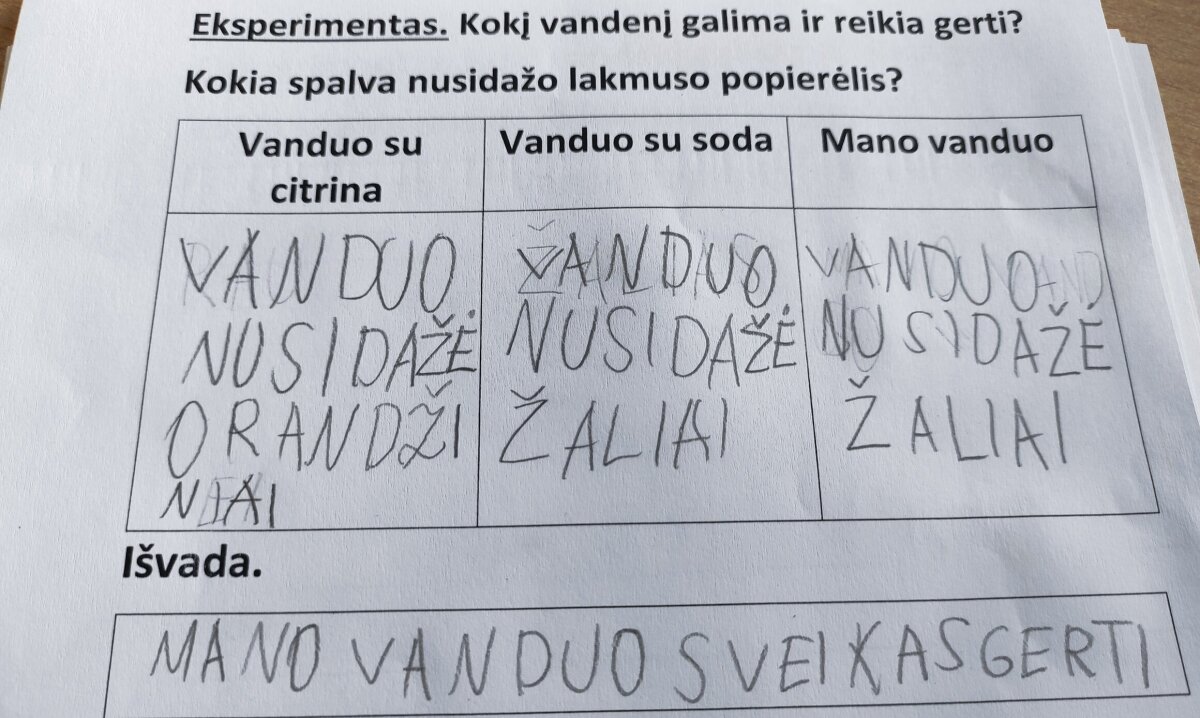 Eksperimentas. Kokį vandenį galima ir reikia gerti?
Kokia spalva nusidažo lakmuso popierėlis?
Vanduo su
citrina
Vanduo su soda
Mano vanduo
VANDUO
NUSIDAŽĖ
ORANDŽI
NIAI
VANDUO
NUSIDAŽĖ
ŽALIAI
VANDUO
NUSIDAŽĖ
ŽALIAI
Išvada.
MANO VANDUO SVEIKAS GERTI